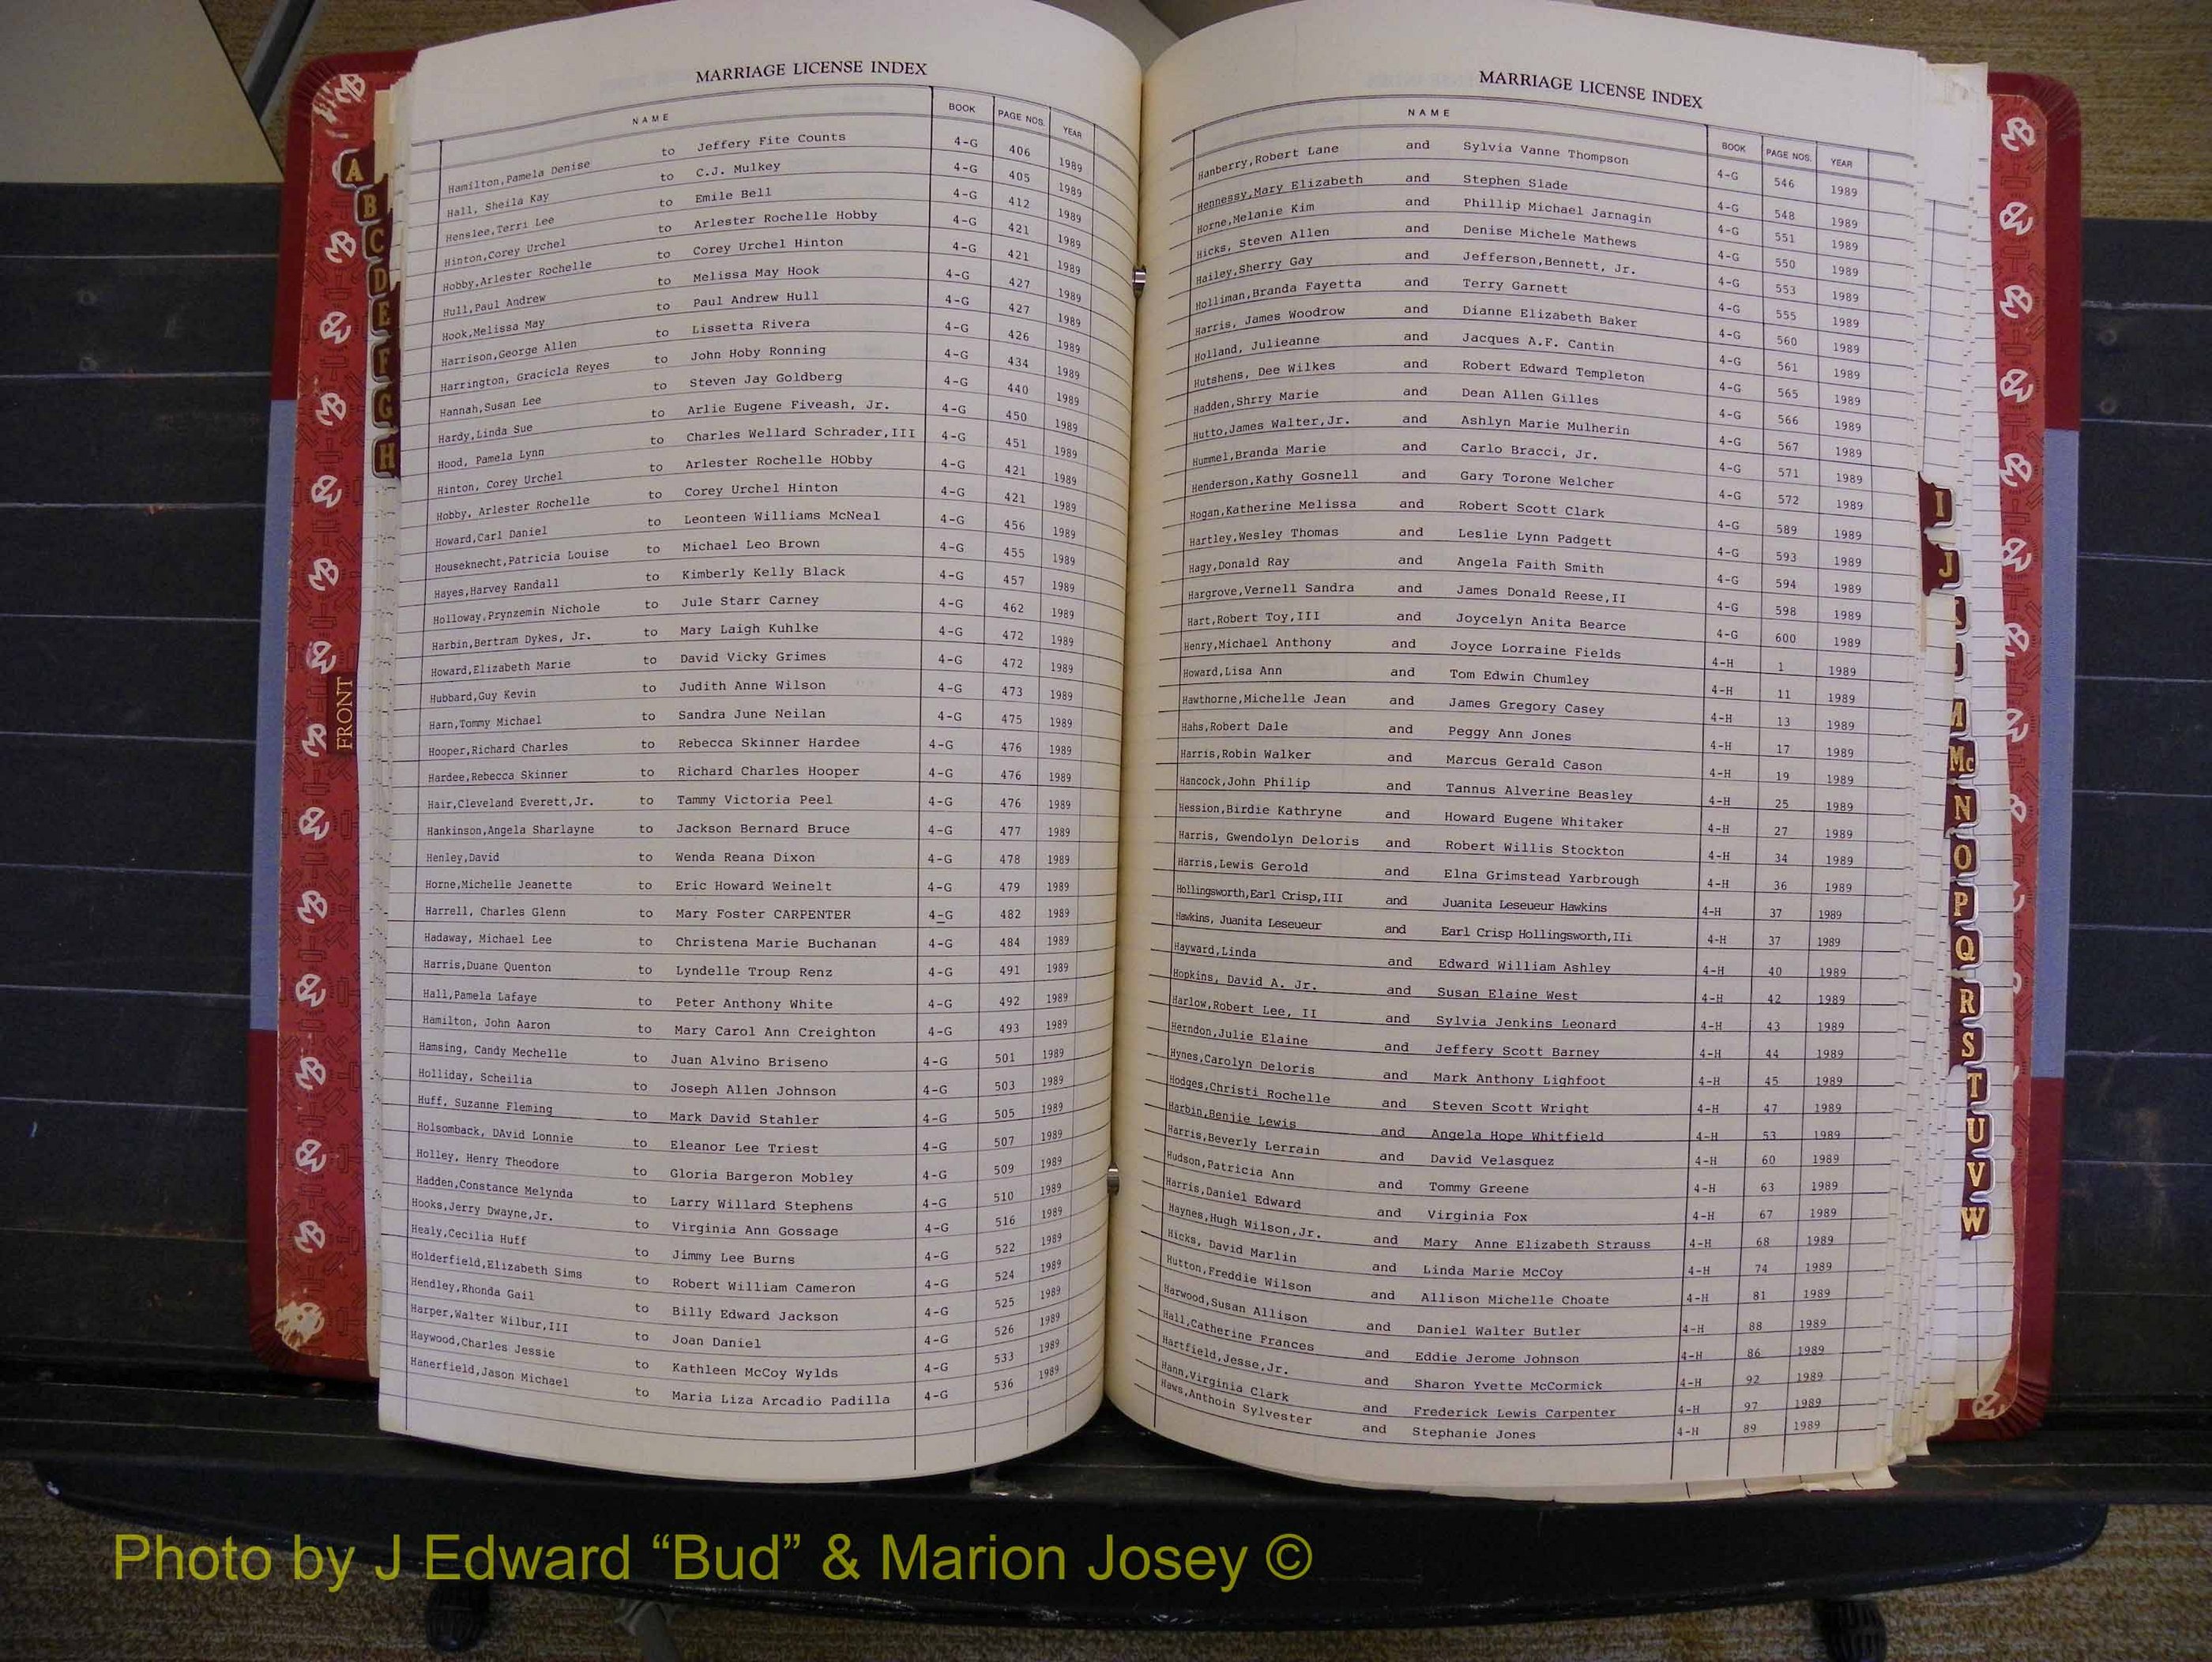 MARRIAGE LICENSE INDEX
NAME BOOK PAGE NOS. YEAR
Hamilton,Pamela Denise to Jeffery Fite Counts 4-G 406 1989
Hall, Sheila Kay to C.J. Mulkey 4-G 405 1989
Henslee,Terri Lee to Emile Bell 4-G 412 1989
Hinton,Corey Urchel to Arlester Rochelle Hobby 4-G 421 1989
Hobby,Arlester Rochelle to Corey Urchel Hinton 4-G 421 1989
Hull,Paul Andrew to Melissa May Hook 4-G 427 1989
Hook,Melissa May to Paul Andrew Hull 4-G 427 1989
Harrison,George Allen to Lissetta Rivera 4-G 426 1989
Harrington, Gracicla Reyes to John Hoby Ronning 4-G 434 1989
Hannah,Susan Lee to Steven Jay Goldberg 4-G 440 1989
Hardy,Linda Sue to Arlie Eugene Fiveash, Jr. 4-G 450 1989
Hood, Pamela Lynn to Charles Wellard Schrader,III 4-G 451 1989
Hinton, Corey Urchel to Arlester Rochelle HObby 4-G 421 1989
Hobby, Arlester Rochelle to Corey Urchel Hinton 4-G 421 1989
Howard,Carl Daniel to Leonteen Williams McNeal 4-G 456 1989
Houseknecht,Patricia Louise to Michael Leo Brown 4-G 455 1989
Hayes,Harvey Randall to Kimberly Kelly Black 4-G 457 1989
Holloway,Prynzemin Nichole to Jule Starr Carney 4-G 462 1989
Harbin,Bertram Dykes, Jr. to Mary Laigh Kuhlke 4-G 472 1989
Howard,Elizabeth Marie to David Vicky Grimes 4-G 472 1989
Hubbard,Guy Kevin to Judith Anne Wilson 4-G 473 1989
Harn,Tommy Michael to Sandra June Neilan 4-G 475 1989
Hooper,Richard Charles to Rebecca Skinner Hardee 4-G 476 1989
Hardee,Rebecca Skinner to Richard Charles Hooper 4-G 476 1989
Hair,Cleveland Everett,Jr. to Tammy Victoria Peel 4-G 476 1989
Hankinson,Angela Sharlayne to Jackson Bernard Bruce 4-G 477 1989
Henley,David to Wenda Reana Dixon 4-G 478 1989
Horne,Michelle Jeanette to Eric Howard Weinelt 4-G 479 1989
Harrell, Charles Glenn to Mary Foster CARPENTER 4-G 482 1989
Hadaway, Michael Lee to Christena Marie Buchanan 4-G 484 1989
Harris,Duane Quenton to Lyndelle Troup Renz 4-G 491 1989
Hall,Pamela Lafaye to Peter Anthony White 4-G 492 1989
Hamilton, John Aaron to Mary Carol Ann Creighton 4-G 493 1989
Hamsing, Candy Mechelle to Juan Alvino Briseno 4-G 501 1989
Holliday, Scheilia to Joseph Allen Johnson 4-G 503 1989
Huff, Suzanne Fleming to Mark David Stahler 4-G 505 1989
Holsomback, DAvid Lonnie to Eleanor Lee Triest 4-G 507 1989
Holley, Henry Theodore to Gloria Bargeron Mobley 4-G 509 1989
Hadden,Constance Melynda to Larry Willard Stephens 4-G 510 1989
Hooks,Jerry Dwayne,Jr. to Virginia Ann Gossage 4-G 516 1989
Healy,Cecilia Huff to Jimmy Lee Burns 4-G 522 1989
Holderfield,Elizabeth Sims to Robert William Cameron 4-G 524 1989
Hendley,Rhonda Gail to Billy Edward Jackson 4-G 525 1989
Harper,Walter Wilbur,III to Joan Daniel 4-G 526 1989
Haywood,Charles Jessie to Kathleen McCoy Wylds 4-G 533 1989
Hanerfield,Jason Michael to Maria Liza Arcadio Padilla 4-G 536 1989
MARRIAGE LICENSE INDEX
NAME BOOK PAGE NOS. YEAR
Hanberry,Robert Lane and Sylvia Vanne Thompson 4-G 546 1989
Hennessy,Mary Elizabeth and Stephen Slade 4-G 548 1989
Horne,Melanie Kim and Phillip Michael Jarnagin 4-G 551 1989
Hicks, Steven Allen and Denise Michele Mathews 4-G 550 1989
Hailey,Sherry Gay and Jefferson,Bennett, Jr. 4-G 553 1989
Holliman,Branda Fayetta and Terry Garnett 4-G 555 1989
Harris, James Woodrow and Dianne Elizabeth Baker 4-G 560 1989
Holland, Julieanne and Jacques A.F. Cantin 4-G 561 1989
Hutshens, Dee Wilkes and Robert Edward Templeton 4-G 565 1989
Hadden,Shrry Marie and Dean Allen Gilles 4-G 566 1989
Hutto,James Walter,Jr. and Ashlyn Marie Mulherin 4-G 567 1989
Hummel,Branda Marie and Carlo Bracci, Jr. 4-G 571 1989
Henderson,Kathy Gosnell and Gary Torone Welcher 4-G 572 1989
Hogan,Katherine Melissa and Robert Scott Clark 4-G 589 1989
Hartley,Wesley Thomas and Leslie Lynn Padgett 4-G 593 1989
Hagy,Donald Ray and Angela Faith Smith 4-G 594 1989
Hargrove,Vernell Sandra and James Donald Reese,II 4-G 598 1989
Hart,Robert Toy,III and Joycelyn Anita Bearce 4-G 600 1989
Henry,Michael Anthony and Joyce Lorraine Fields 4-H 1 1989
Howard,Lisa Ann and Tom Edwin Chumley 4-H 11 1989
Hawthorne,Michelle Jean and James Gregory Casey 4-H 13 1989
Hahs,Robert Dale and Peggy Ann Jones 4-H 17 1989
Harris,Robin Walker and Marcus Gerald Cason 4-H 19 1989
Hancock,John Philip and Tannus Alverine Beasley 4-H 25 1989
Hession,Birdie Kathryne and Howard Eugene Whitaker 4-H 27 1989
Harris, Gwendolyn Deloris and Robert Willis Stockton 4-H 34 1989
Harris,Lewis Gerold and Elna Grimstead Yarbrough 4-H 36 1989
Hollingsworth,Earl Crisp,III and Juanita Leseueur Hawkins 4-H 37 1989
Hawkins, Juanita Leseueur and Earl Crisp Hollingsworth,IIi 4-H 37 1989
Hayward,Linda and Edward William Ashley 4-H 40 1989
Hopkins, David A. Jr. and Susan Elaine West 4-H 42 1989
Harlow,Robert Lee, II and Sylvia Jenkins Leonard 4-H 43 1989
Herndon,Julie Elaine and Jeffery Scott Barney 4-H 44 1989
Hynes,Carolyn Deloris and Mark Anthony Lighfoot 4-H 45 1989
Hodges,Christi Rochelle and Steven Scott Wright 4-H 47 1989
Harbin,Benjie Lewis and Angela Hope Whitfield 4-H 53 1989
Harris,Beverly Lerrain and David Velasquez 4-H 60 1989
Hudson,Patricia Ann and Tommy Greene 4-H 63 1989
Harris,Daniel Edward and Virginia Fox 4-H 67 1989
Haynes,Hugh Wilson,Jr. and Mary Anne Elizabeth Strauss 4-H 68 1989
Hicks, David Marlin and Linda Marie McCoy 4-H 74 1989
Hutton,Freddie Wilson and Allison Michelle Choate 4-H 81 1989
Harwood,Susan Allison and Daniel Walter Butler 4-H 88 1989
Hall,Catherine Frances and Eddie Jerome Johnson 4-H 86 1989
Hartfield,Jesse,Jr. and Sharon Yvette McCormick 4-H 92 1989
Hann,Virginia Clark and Frederick Lewis Carpenter 4-H 97 1989
Haws,Anthoin Sylvester and Stephanie Jones 4-H 89 1989
A
B
C
D
E
F
G
H
FRONT
I
J
M
Mc
N
O
P
Q
R
S
T
U
V
W
Photo by J Edward “Bud” & Marion Josey ©